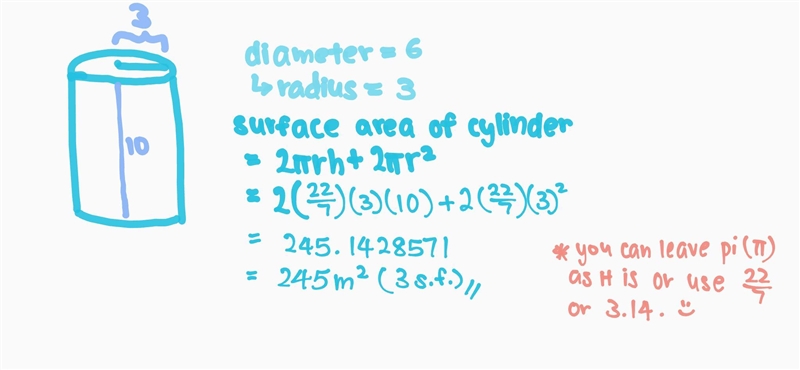 3
10
diameter = 6
↳ radius = 3
surface area of cylinder
= 2πrh + 2πr²
= 2(22/7)(3)(10) + 2(22/7)(3)²
= 245.1428571
= 245m² (3 s.f.)//
* you can leave pi (π)
as it is or use 22/7
or 3.14. ☺